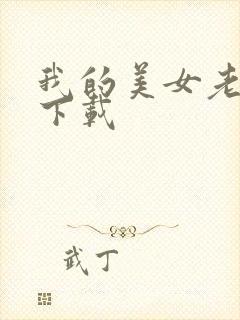 我的美女老
下载
武丁